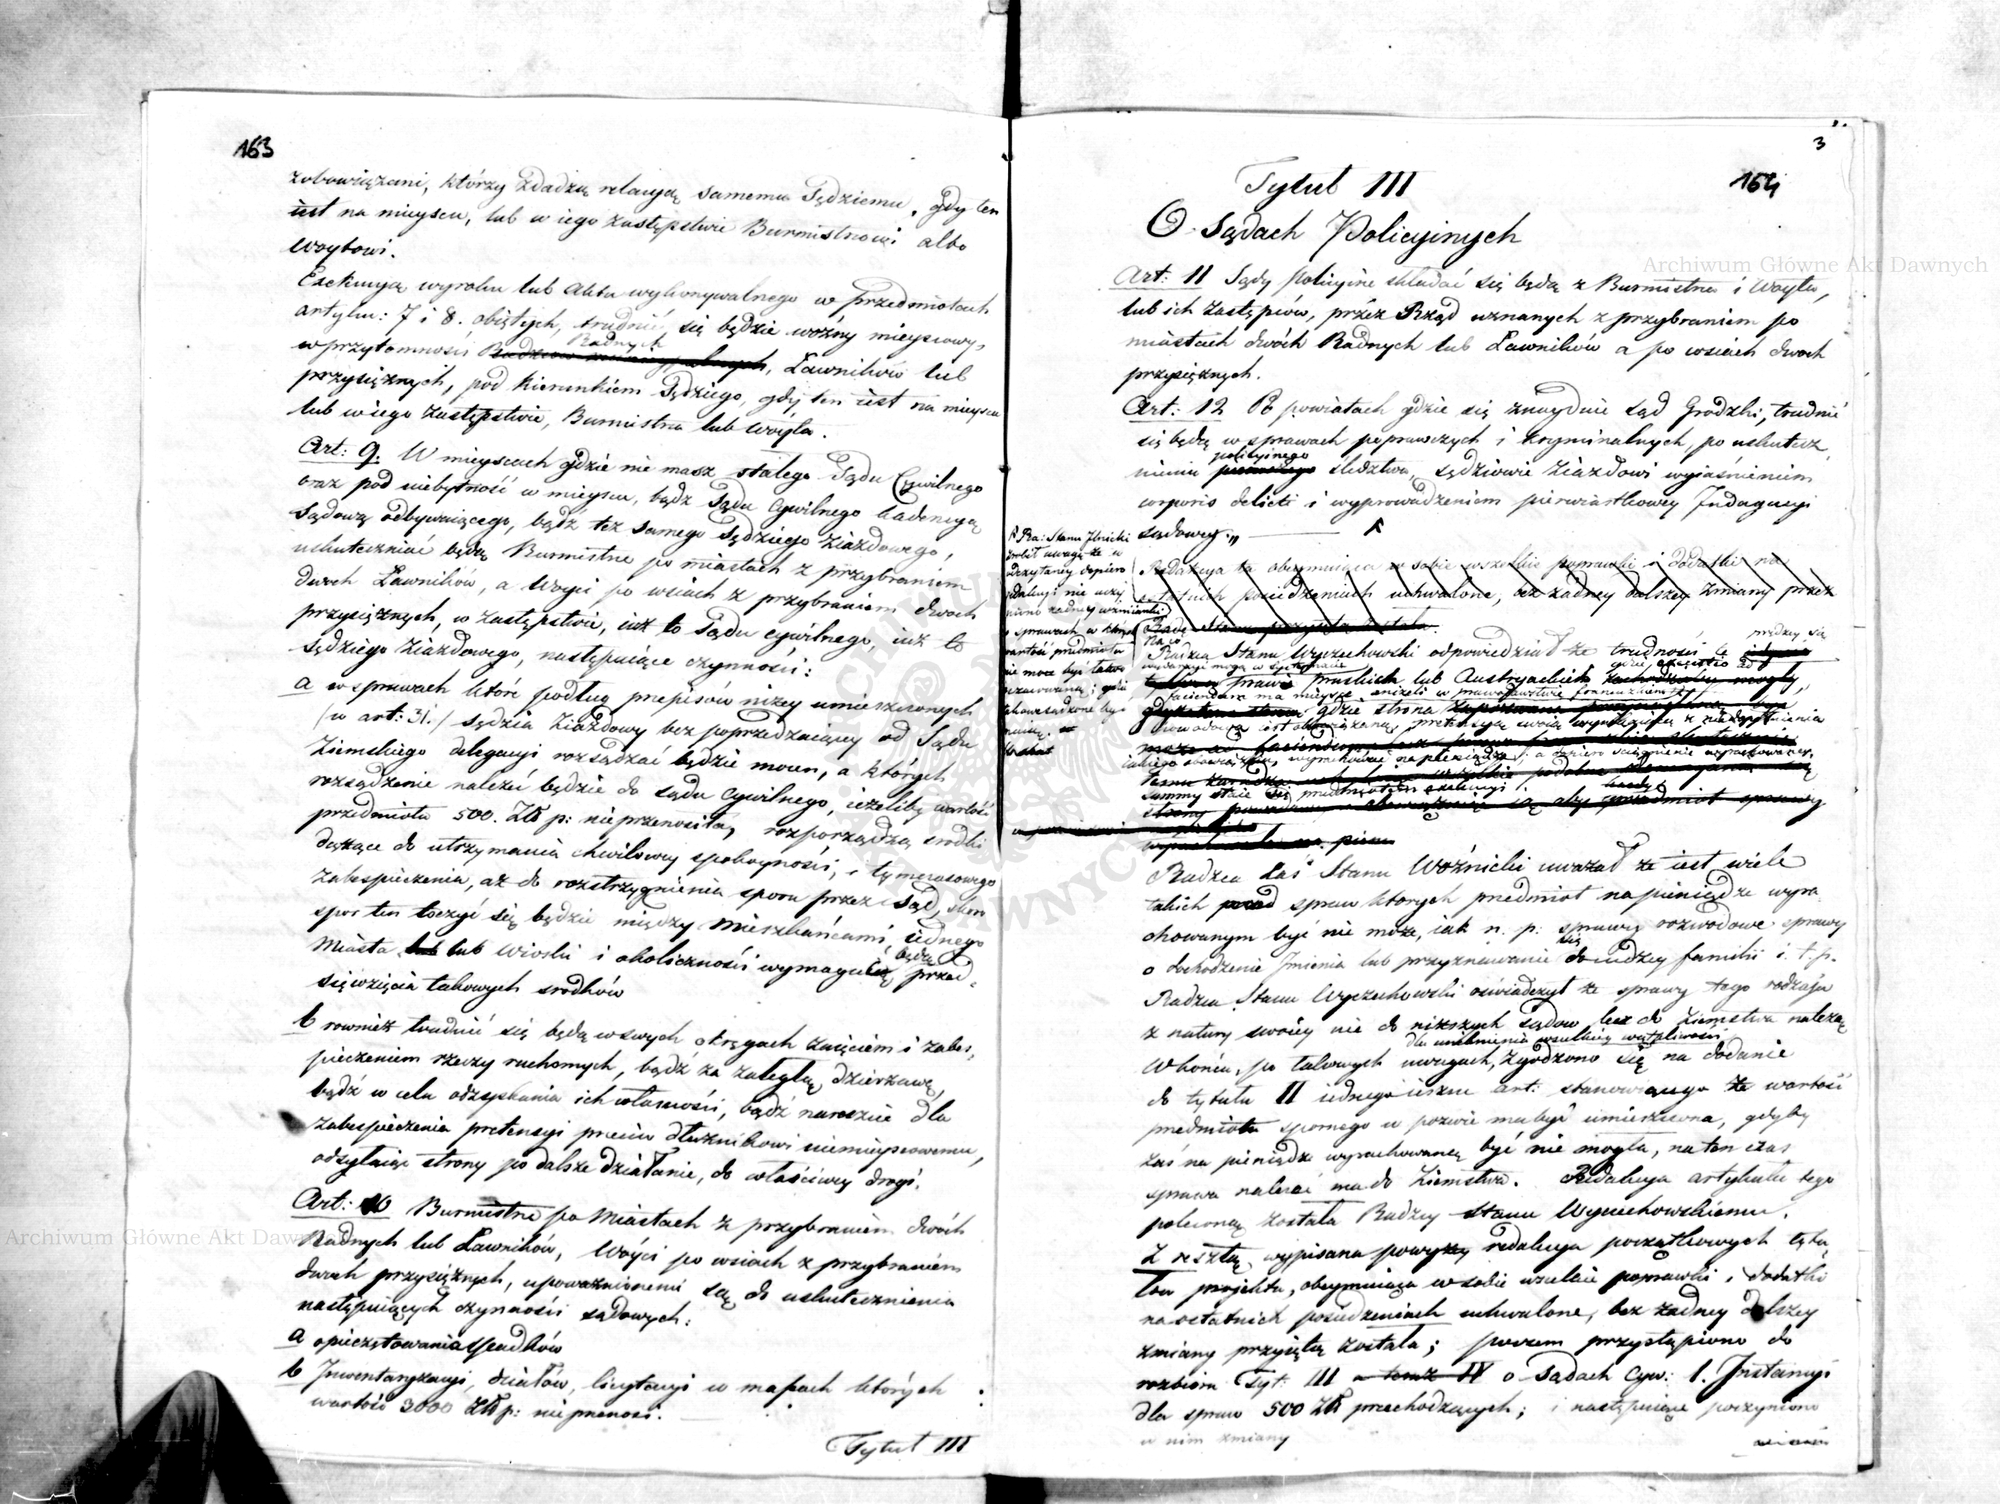 163
zobowiązani, którzy zdadzą relacyą samemu Sędziemu, gdy ten
iest na mieyscu, lub w iego zastępstwie Burmistrzowi albo
Woytowi.
Exekucyą wyroku lub Aktu wykonywalnego w przedmiotach
artykn: 7 i 8. obiętych, trudnić się będzie woźny mieyscowy,
w przytomności Radnych, Ławników lub
przysiężnych, pod kierunkiem Sędziego, gdy ten iest na mieyscu
lub w iego zastępstwie, Burmistrza lub Woyta.
Art: 9. W mieyscach gdzie nie masz stałego Sądu Cywilnego
oraz pod niebytność w mieyscu, bądz Sądu Cywilnego kadencyą
Sądową odbywaiącego, bądź tez samego Sędziego Ziazdowego,
uskuteczniać będą Burmistrze po miastach z przybraniem
dwoch Ławników, a Woyci po wsiach z przybraniem dwoch
przysiężnych, w zastępstwie, iuż to Sądu cywilnego, iuż to
Sędziego Ziazdowego, następuiące czynności:
a w sprawach które podług przepisów niżey umieszczonych
/w art: 31./ Sędzia Ziazdowy bez poprzedzaiącey od Sądu
Ziemskiego delegacyi rozsądzać będzie mocen, a których
rozsądzenie należeć będzie do sądu Cywilnego, ieżeliby wartość
przedmiotu 500. Złt p: nieprzenosiła, rozporządzą srodki
dążące do utrzymania chwilowey spokoyności, i tymczasowego
zabespieczenia, aż do rozstrzygnienia sporu przez Sąd, skoro
spor ten toczyć się będzie między Mieszkańcami, iednego
Miasta lub Wioski i okoliczności wymagać będą przed-
sięwzięcia takowych srodków
b rownież trudnić się będą w swych okręgach zaięciem i zabes,
pieczeniem rzeczy ruchomych, bądź za zaległą dzierżawę,
bądź w celu odzyskania ich własności, bądź nareszcie dla
zabespieczenia pretensyi przeciw dłużnikowi niemieyscowemu,
odsyłaiąc strony po dalsze działanie, do właściwey drogi.
Art: 10 Burmistrze po Miastach z przybraniem dwóch
Radnych lub Ławników, Woyci po wsiach z przybraniem
dwoch przysiężnych, upoważnionemi są do uskutecznienia
następuiących czynności sądowych:
a opieczętowania Spadków
b Inwentaryzacyi, działów, licytacyi w massach których
wartość 3000 Złt p: nieprzenosi.
Tytuł III
3
164
Tytuł III
O Sądach Policyinych
Art: 11 Sądy policyine składać się będą z Burmistrza i Woyta,
lub ich Zastępców, przez Rząd uznanych z przybraniem po
miastach dwóch Radnych lub Ławników a po wsiach dwoch
przysiężnych.
Art: 12 W powiatach gdzie się znayduie Sąd Grodzki, trudnić
się będą w sprawach poprawczych i kryminalnych, po uskutecz,
nieniu policyinego śledztwa, sędziowie Ziazdowi wyiaśnieniem
corporis delicti i wyprowadzeniem pierwiastkowey Indagacyi
sądowey.
Ra: Stanu
zrobił uwagę że w
odczytaney dopiero
redakcyi nie uczy
niono żadney wzmianki
o sprawach w których
wartość przedmiotu
nie może być
Redakcya ta obeymuiąca w sobie wszelkie poprawki i dodatki na
ostatnich posiedzeniach uchwalone, bez żadney dalszey zmiany przez
Radę Stanu przyięta została.
Radca Stanu Wyczechowski odpowiedział że trudności te między się
w prawie pruskich lub Austryackich
gdzie strona
Radca Zas Stanu Woźnicki uważał że iest wiele
takich spraw których przedmiot na pieniądze wyra
chowanym być nie może, iak n. p: sprawy rozwodowe sprawy
o dochodzenie Imienia lub przyznawanie się do iedney familii i. t. p.
Radca Stanu Wyczechowski oświadczył że sprawy tego rodzaiu
z natury swoiey nie do niższych sądow lecz do Ziemstwa należą
dla uniknienia wszelkiey wątpliwości
W końcu, po takowych uwagach, zgodzono się na dodanie
do tytułu II iednego ieszcze art: stanowiącego że wartość
przedmiotu spornego w pozwie ma być umieszczona, gdyby
zaś na pieniądze wyrachowaną być nie mogła, na ten czas
sprawa należeć ma do Ziemstwa. Redakcya artykułu tego
poleconą została Radcy Stanu Wyczechowskiemu.
Z resztą wypisana powyżey redakcya początkowych tytu,
łow projektu, obeymuiąca w sobie wszelkie poprawki i dodatki
na ostatnich posiedzeniach uchwalone, bez żadney dalszey
zmiany przyiętą została; poczem przystąpiono do
rozbioru Tyt: III a teraz IV o Sądach Cyw: 1. Instancyi
dla spraw 500 Złt przechodzących; i następuiące poczyniono
w nim zmiany
Archiwum Główne Akt Dawnych
Archiwum Główne Akt Dawnych